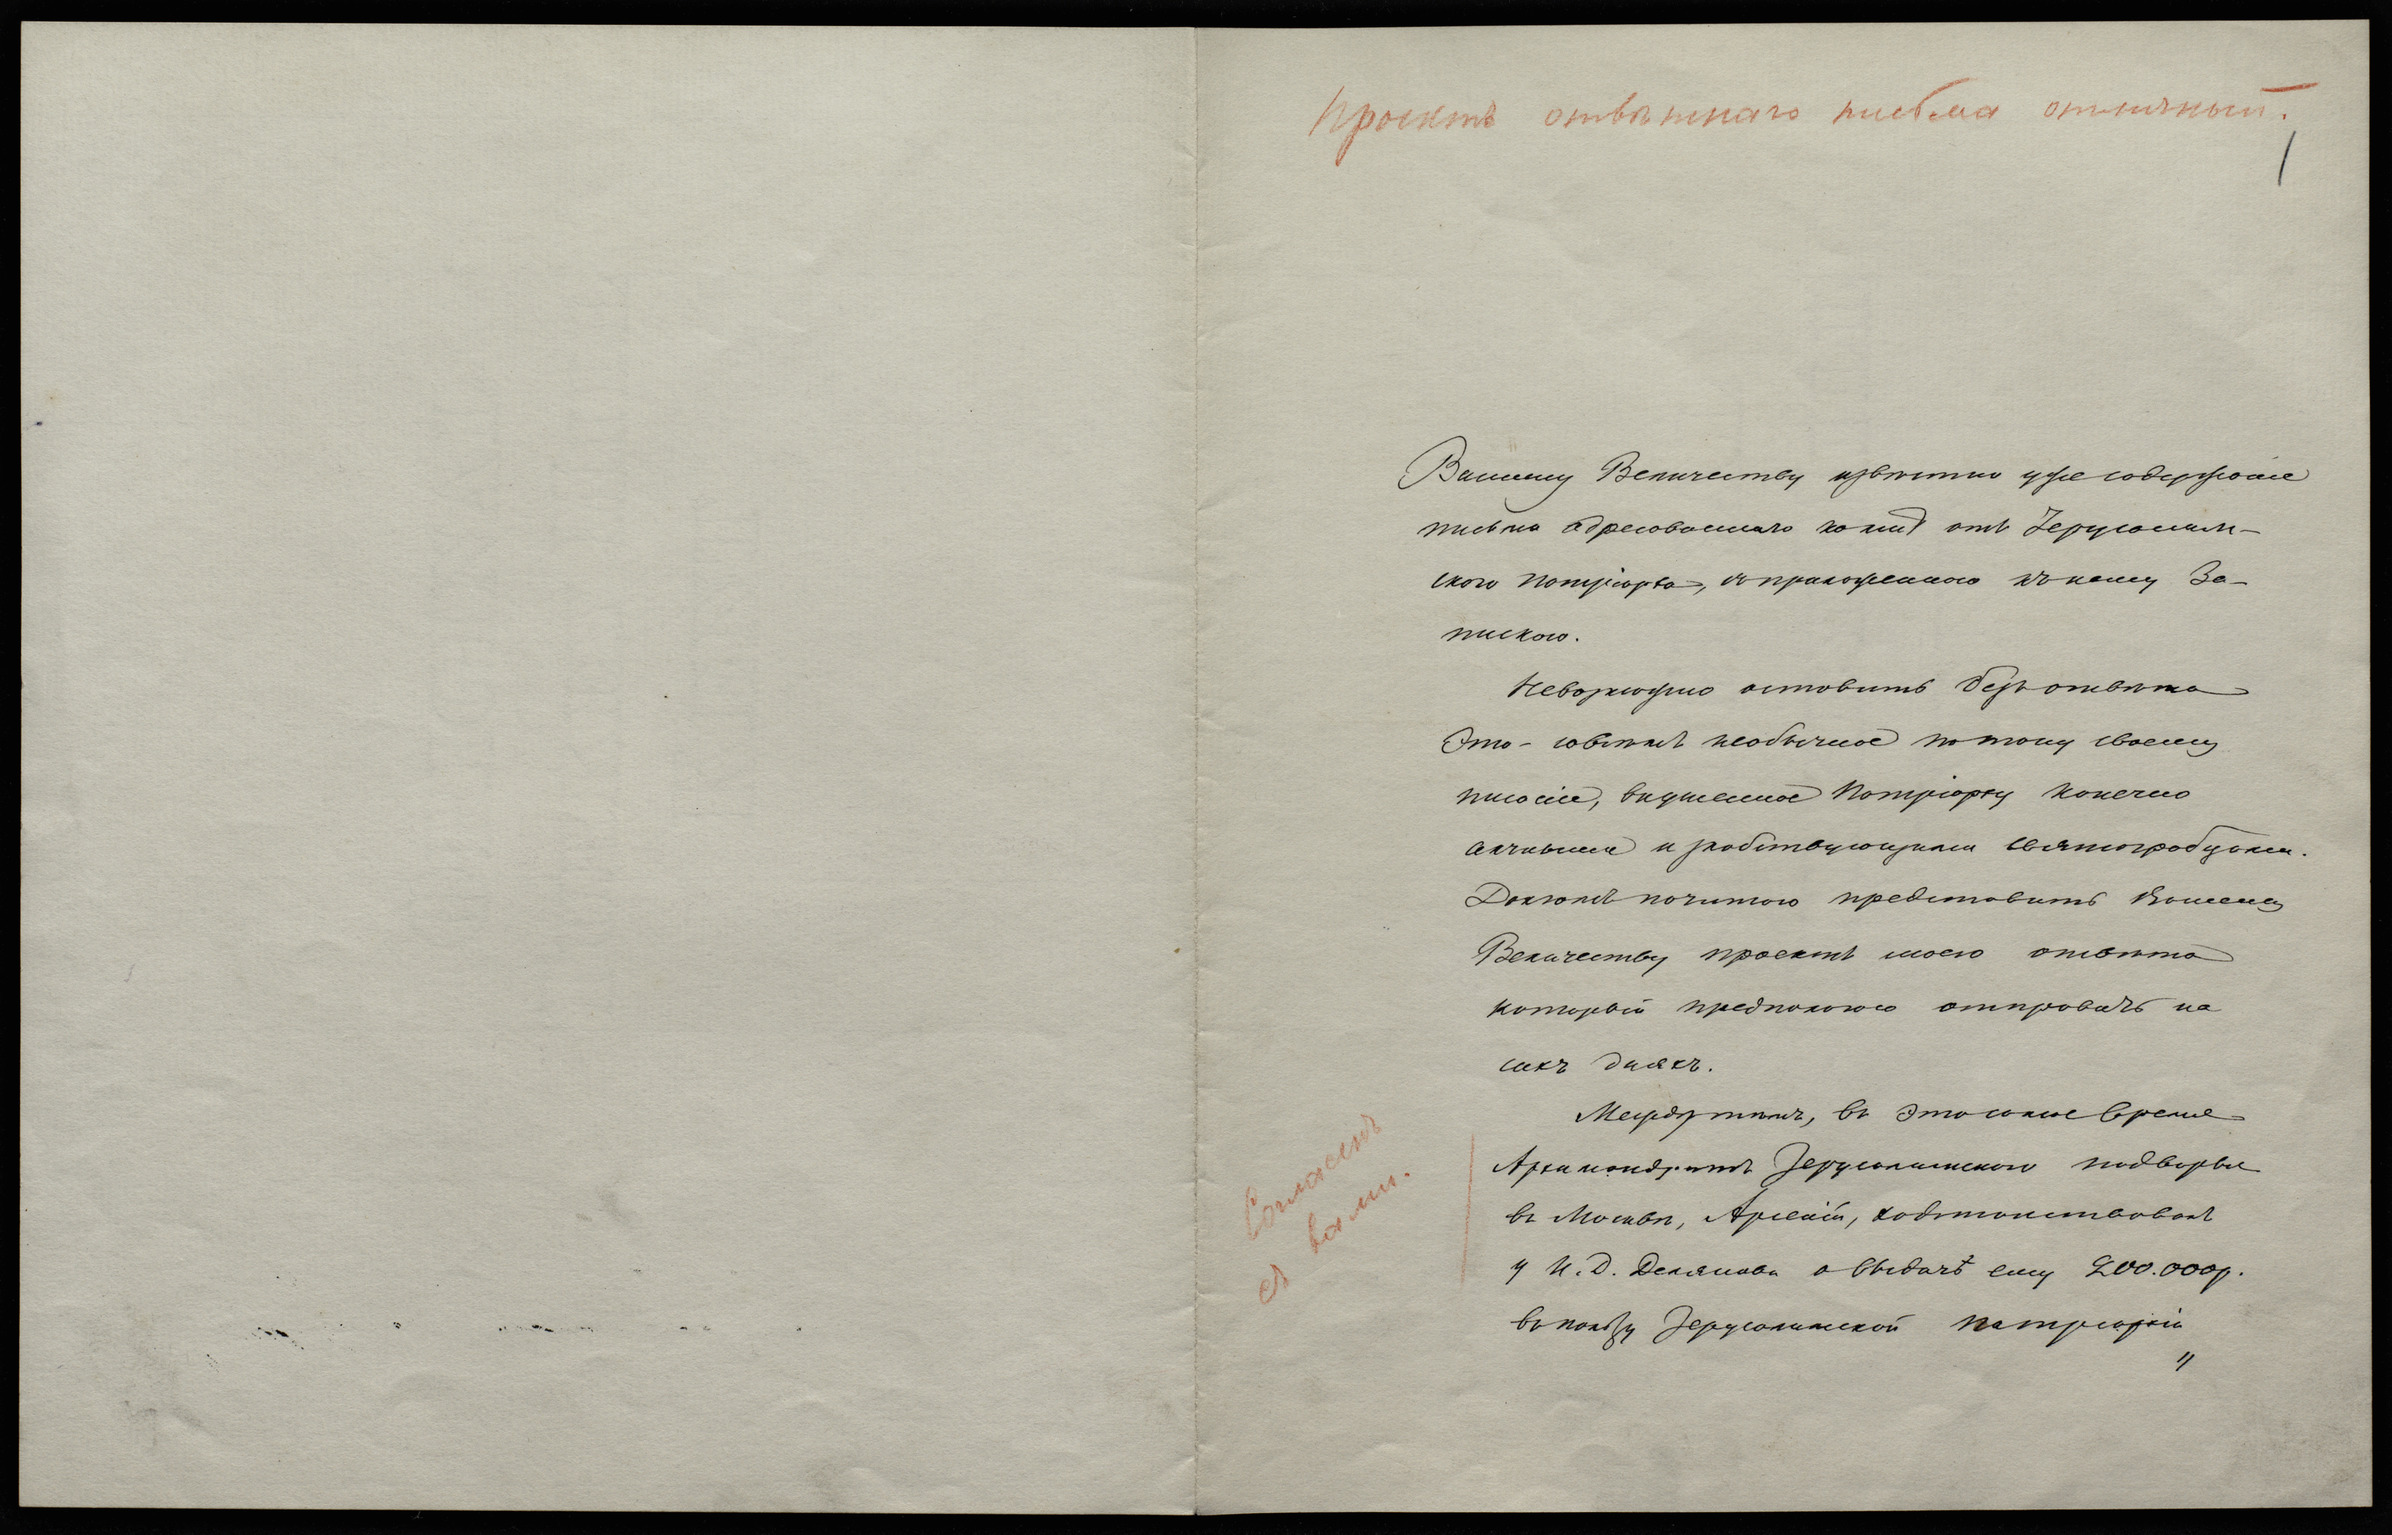 Проектъ отвѣтнаго письма отличный.
1
Вашему Величеству извѣстно уже содержаніе
письма адресованнаго ко мнѣ отъ Іерусалим-
скаго патріарха, съ приложенною къ нему За-
пискою.
Невозможно оставить безъ отвѣта
Это – совсѣмъ необычное по тону своему
писаніе, внушенное Патріарху конечно
алчными и злобствующими святогробцами.
Долгомъ почитаю представить Вашему
Величеству проектъ моего отвѣта
который предполагаю отправить на
сихъ дняхъ.
Между тѣмъ, въ это самое время
Архимандритъ Іерусалимскаго подворья
въ Москвѣ, Арсеній, ходатайствовалъ
у И. Д. Делянова о выдачѣ ему 200.000 р.
въ пользу Іерусалимской патріархіи
Согласенъ
съ вами.